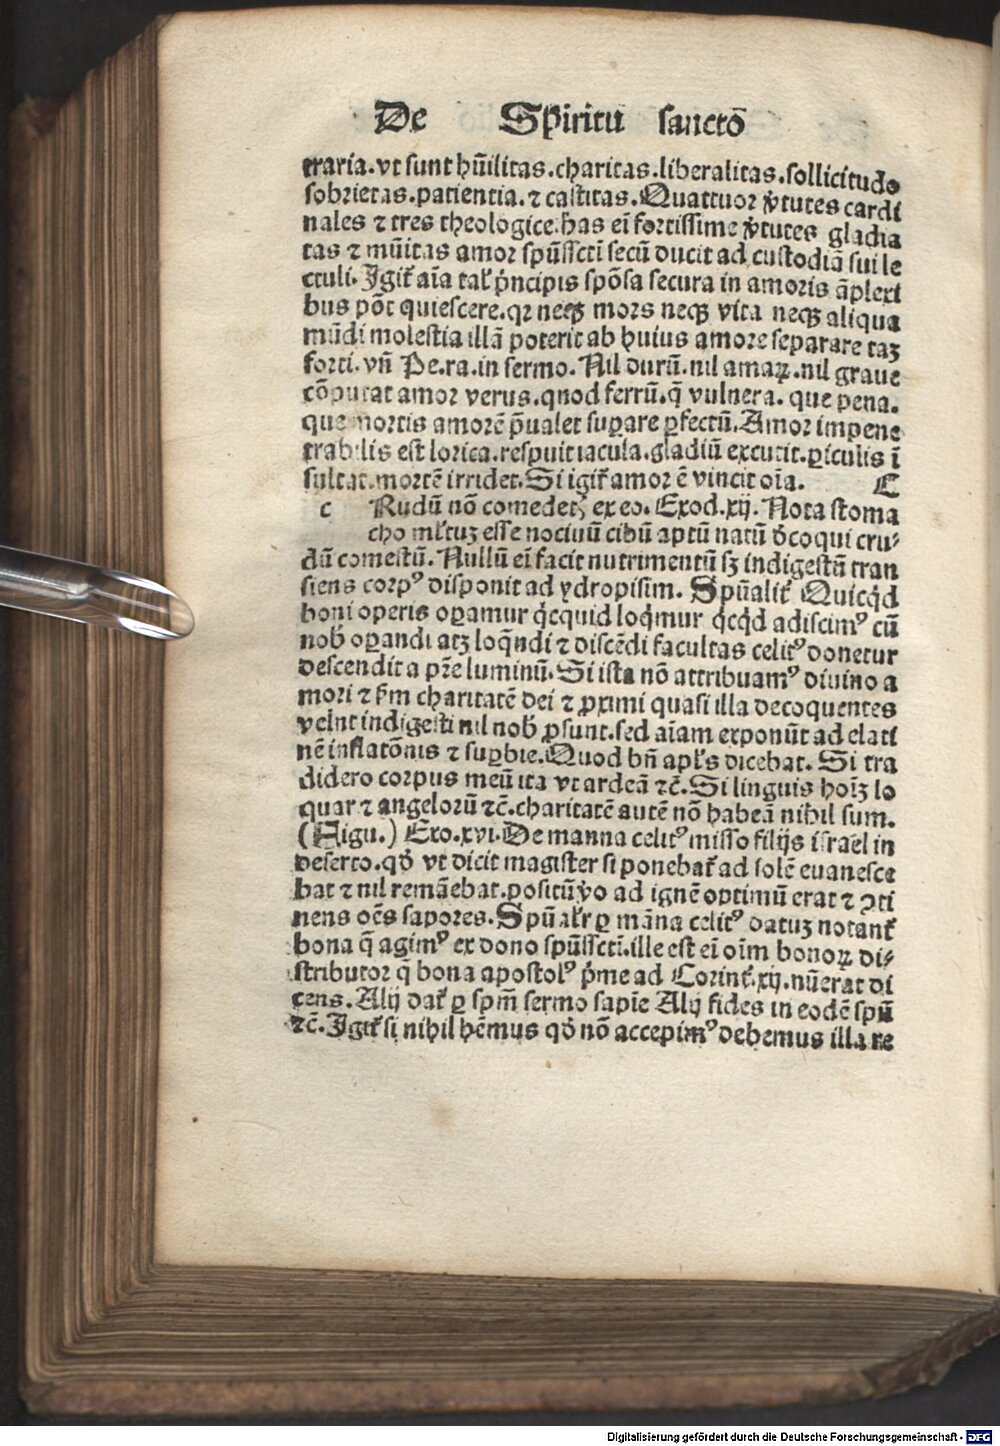 De Spiritu sanctō
traria.vt sunt hūilitas.charitas.liberalitas.sollicitudo
sobrietas.patientia.⁊ castitas.Quattuor v̓tutes cardi
nales ⁊ tres theologice.has ei̅ fortissime v̓tutes gladia
tas ⁊ mūitas amor spūssctī secū ducit ad custodiā sui le
ctuli.Igit̄ aīa tal̓ pͥncipis spōsa secura in amoris āplexi
bus pōt quiescere.qꝛ neqꝫ mors neqꝫ vita neqꝫ aliqua
mūdi molestia illā poterit ab huius amore separare taꝫ
forti. vn̄ Pe.ra.in sermo. Nil durū.nil amaꝝ.nil graue
cōputat amor verus.quod ferrū.q̄ vulnera. que pena.
que mortis amorē p̄ualet suꝑare ꝑfectū.Amor impene
trabilis est lorica.respuit iacula.gladiū excutit.ꝑiculis ī
sultat.mortē irridet.Si igit̄ amor ē vincit oīa. C
c Rudū nō comedetꝭ ex eo. Exod.xij. Nota stoma
cho ml̓tuꝫ esse nociuū cibū aptū natū d̓coqui cru⸗
dū comestū. Nullū ei̅ facit nutrimentū sꝫ indigestū tran
siens corpꝰ disponit ad ydropisim. Spūalit̓ Quicqͥd
boni operis oꝑamur qͥcquid loqͥmur qͥcqͥd adiscimꝰ cū
nob̓ oꝑandi atqꝫ loq̄ndi ⁊ discēdi facultas celitꝰ donetur
descendit a pr̄e luminū. Si ista nō attribuamꝰ diuino a
mori ⁊ ẜm charitatē dei ⁊ ꝓximi quasi illa decoquentes
velut indigesti nil nob̓ ꝓsunt.sed aīam exponūt ad elati
nē inflatōnis ⁊ suꝑbie.Quod bn̄ apl̓s dicebat. Si tra
didero corpus meū ita vt ardeā ⁊c̄. Si linguis hoīꝫ lo
quar ⁊ angelorū ⁊c̄.charitatē autē nō habeā nihil sum.
(Aigu.) Exo.xvi.De manna celitꝰ misso filijs israel in
deserto.qd̓ vt dicit magister si ponebat̄ ad solē euanesce
bat ⁊ nil remāebat.positū v̓o ad ignē optimū erat ⁊ ꝯti
nens oēs sapores. Spūal̓r ꝑ māna celitꝰ datuꝫ notant̄
bona q̄ agimꝰ ex dono spūssctī.ille est ei̅ oīm bonoꝝ di⸗
stributor q̄ bona apostolꝰ pͥme ad Corint̓.xij.nūerat di
cens. Alij dat̄ ꝑ spm̄ sermo sapīe Alij fides in eodē spū
⁊c̄. Igit̄ si nihil hēmus qd̓ nō accepimꝰ debemus illa re
Digitalisierung gefördert durch die Deutsche Forschungsgemeinschaft - DFG